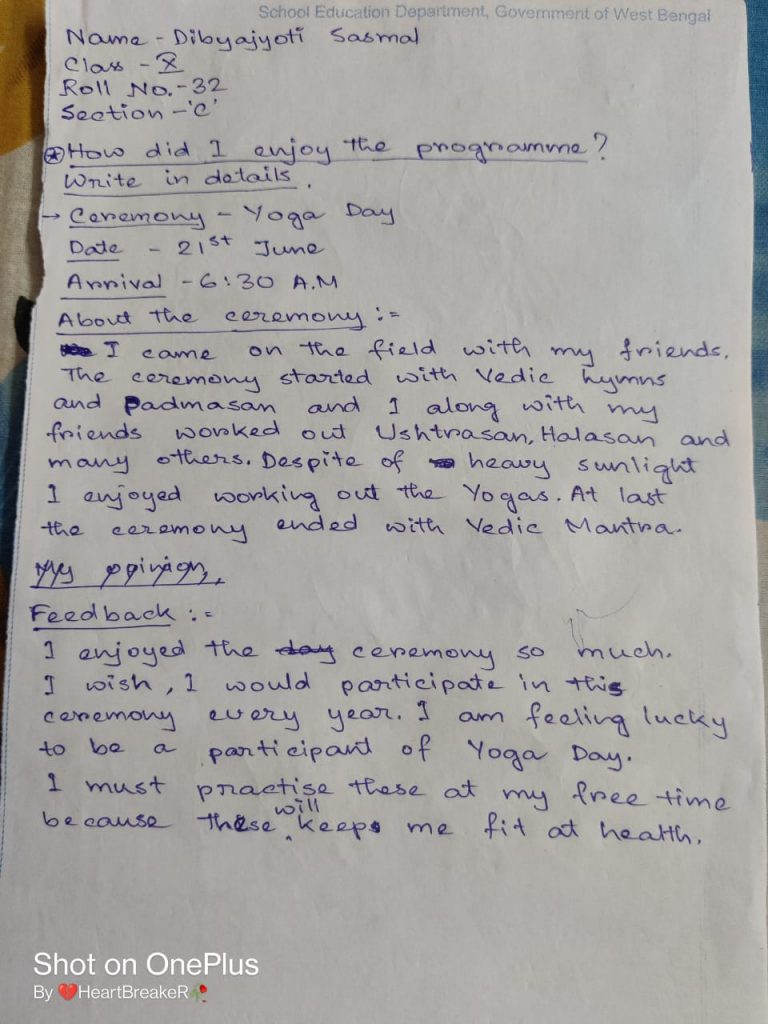 School Education Department, Government of West Bengal
Name - Dibyajyoti Sasmal
Class - X
Roll No.-32
Section -'C'
How did I enjoy the programme?
Write in details.
→ Ceremony - Yoga Day
Date - 21st June
Arrival - 6:30 A.M
About the ceremony :-
I came on the field with my friends.
The ceremony started with Vedic hymns
and Padmasan and I along with my
friends worked out Ushtrasan, Halasan and
many others. Despite of heavy sunlight
I enjoyed working out the Yogas. At last
the ceremony ended with Vedic Mantra.
My opinion,
Feedback :-
I enjoyed the day ceremony so much.
I wish, I would participate in this
ceremony every year. I am feeling lucky
to be a participant of Yoga Day.
I must practise these at my free time
because these will keep me fit at health.
Shot on OnePlus
By 💔HeartBreakeR🥀